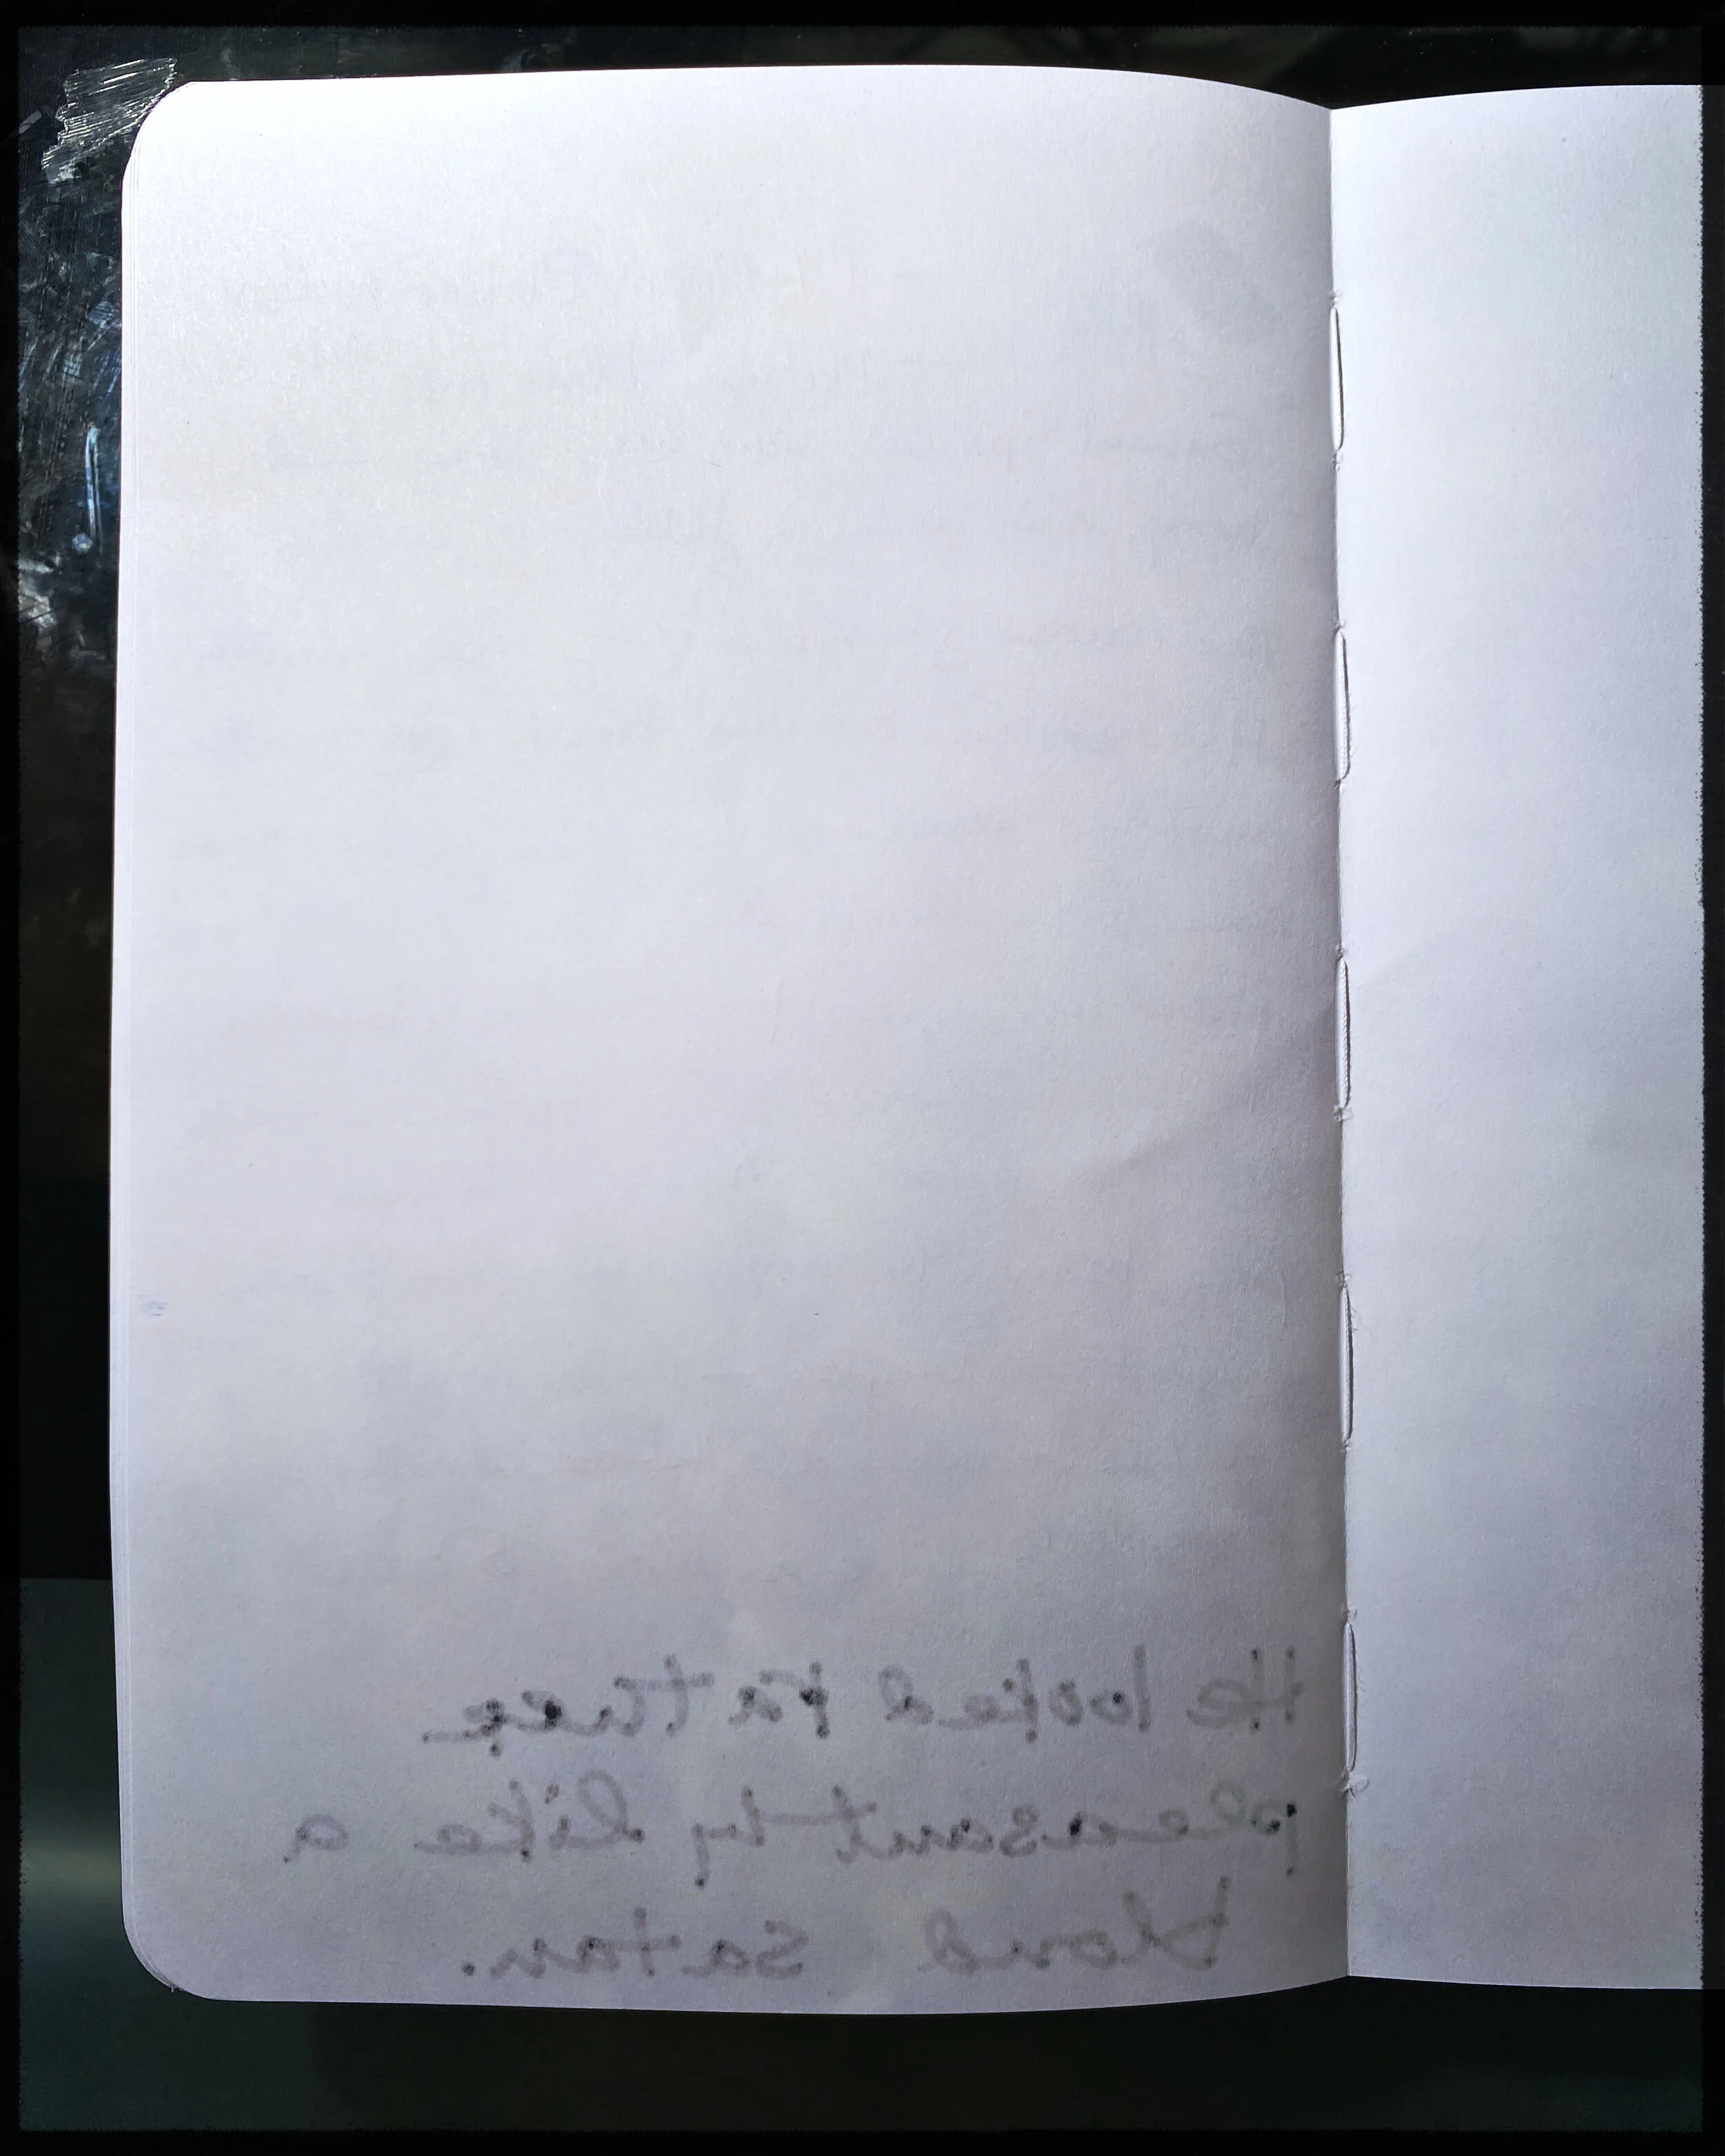 He looked rather
pleasantly like a
blond satan.